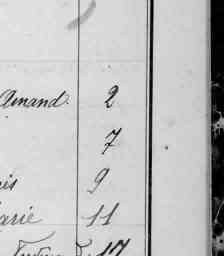 Amand 2
7
is 9
arie 11
17